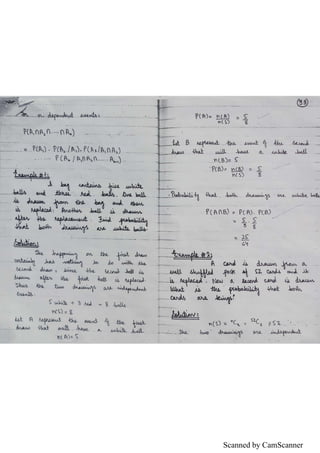 for n dependent events:
P(A₁∩A₂∩ --- ∩Aₙ)
= P(A₁) · P(A₂/A₁) · P(A₃/A₁∩A₂)
P(Aₙ/A₁∩A₂∩ ... Aₙ₋₁)
Example # 1:
A bag contains five white
balls and three red balls. One ball
is drawn from the bag and then
is replaced. Another ball is drawn
after its replacement. Find probability
that both drawings are white balls
Solution:
The happening on the first draw
certainly has nothing to do with the
second draw, since the second ball is
drawn after the first ball is replaced.
Thus the two drawings are independent
events.
5 white + 3 red = 8 balls
n(S) = 8
Let A represent the event of the first
draw that will have a white ball
n(A) = 5
P(A) = n(A)/n(S) = 5/8
Let B represent the event of the second
draw that will have a white ball
n(B) = 5
P(B) = n(B)/n(S) = 5/8
Probability that both drawings are white
P(A∩B) = P(A) · P(B)
= 5/8 · 5/8
= 25/64
Example # 2:
A card is drawn from a
well shuffled pack of 52 cards and it
is replaced. Now a second card is drawn
What is the probability that both
cards are kings?
Solution:
the two drawings are independent
Scanned by CamScanner